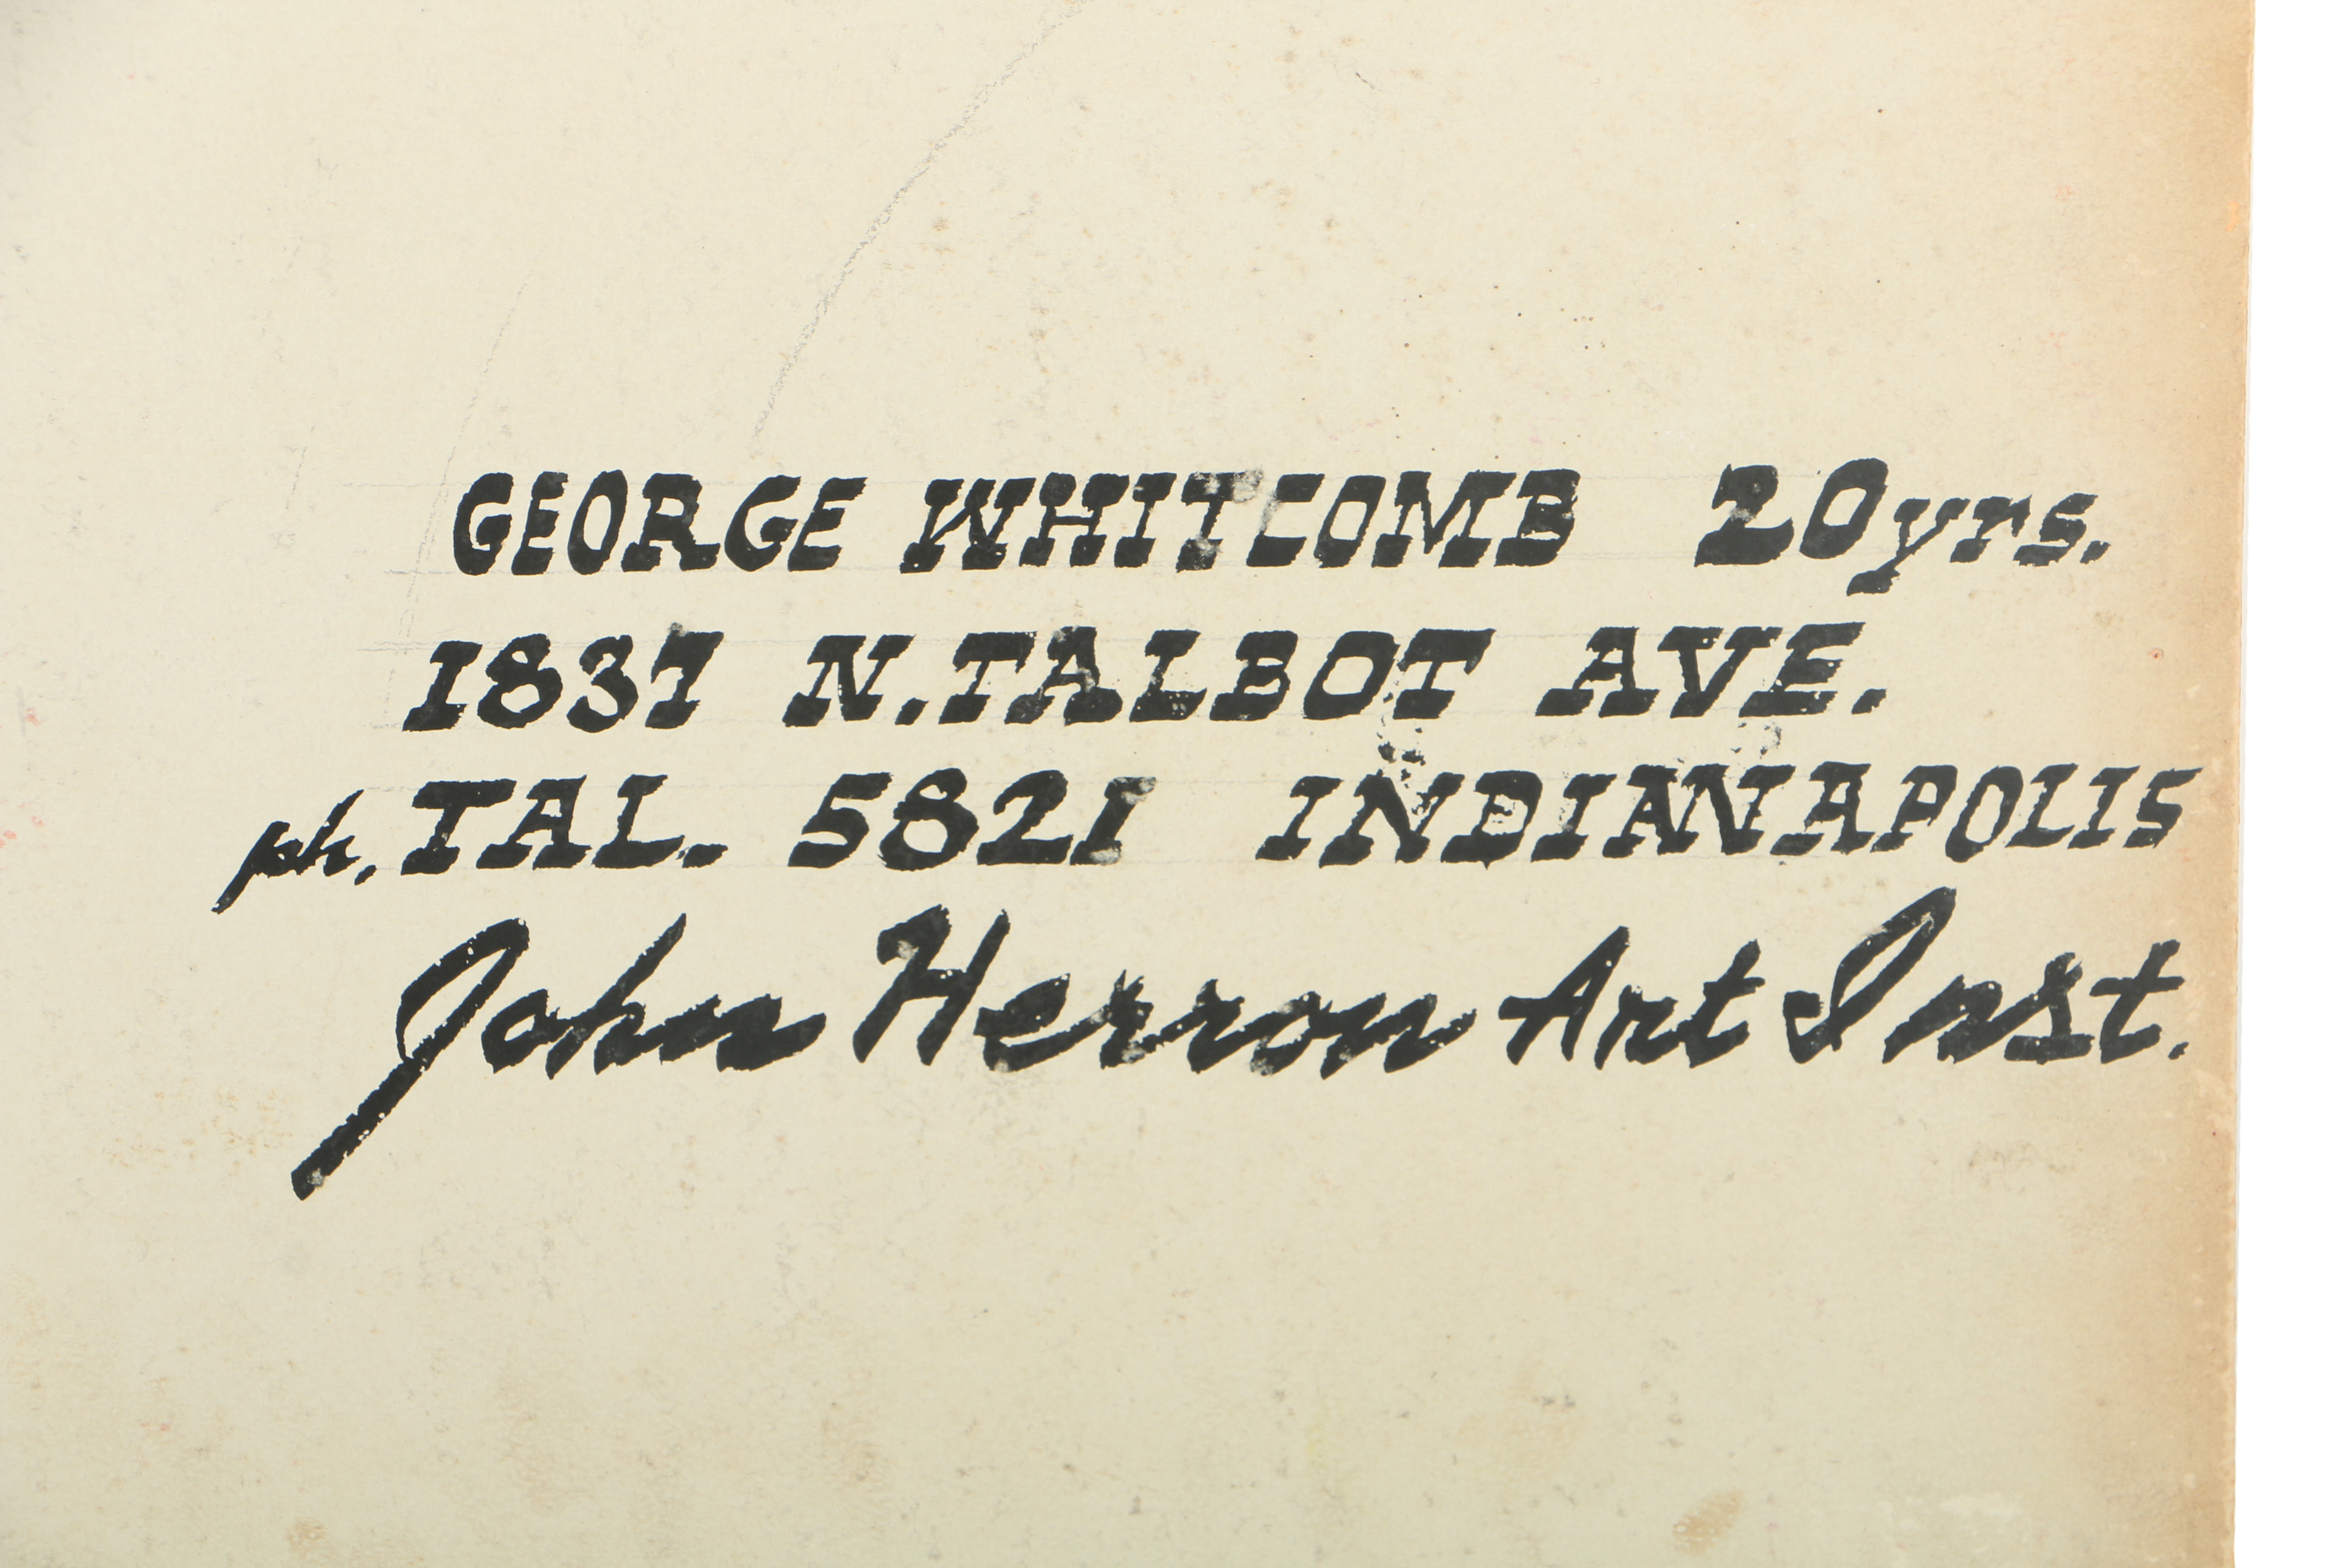 GEORGE WHITCOMB 20yrs.
1837 N. TALBOT AVE.
ph. TAL. 5821 INDIANAPOLIS
John Herron Art Inst.